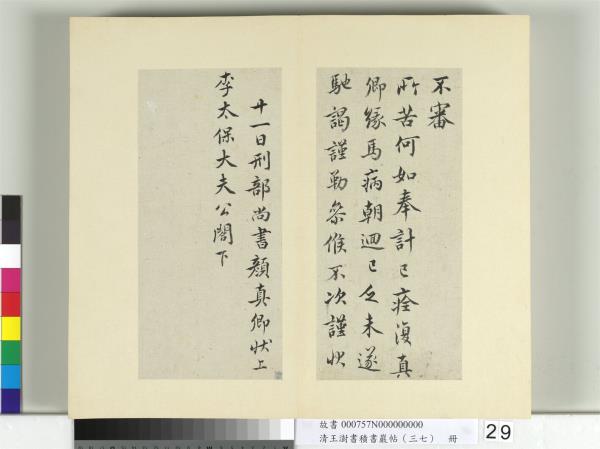 不審
所苦何如奉計已痊復真
卿緣馬病朝迴已乏未遂
馳謁謹勒參候不次謹狀
廿一日刑部尚書顏真卿狀上
李太保大夫公閣下
故書 000757N000000000
清王澍書積書巖帖(三七) 冊
29